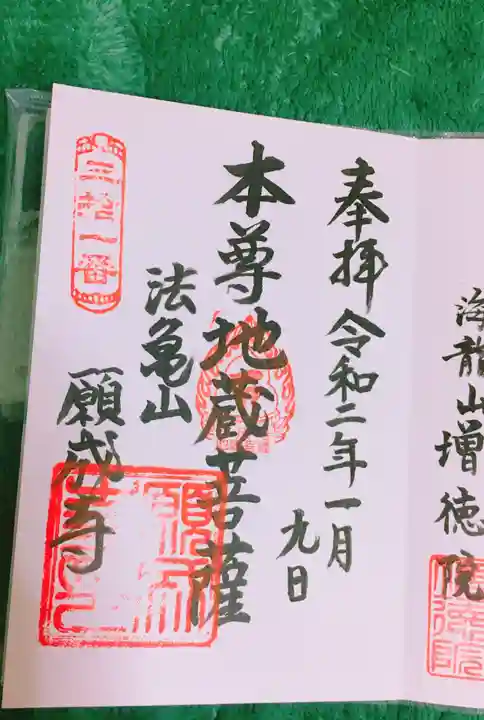 海龍山増徳院
奉拝 令和二年一月
九日
本尊地蔵菩薩
法亀山
願成寺
三拾一番